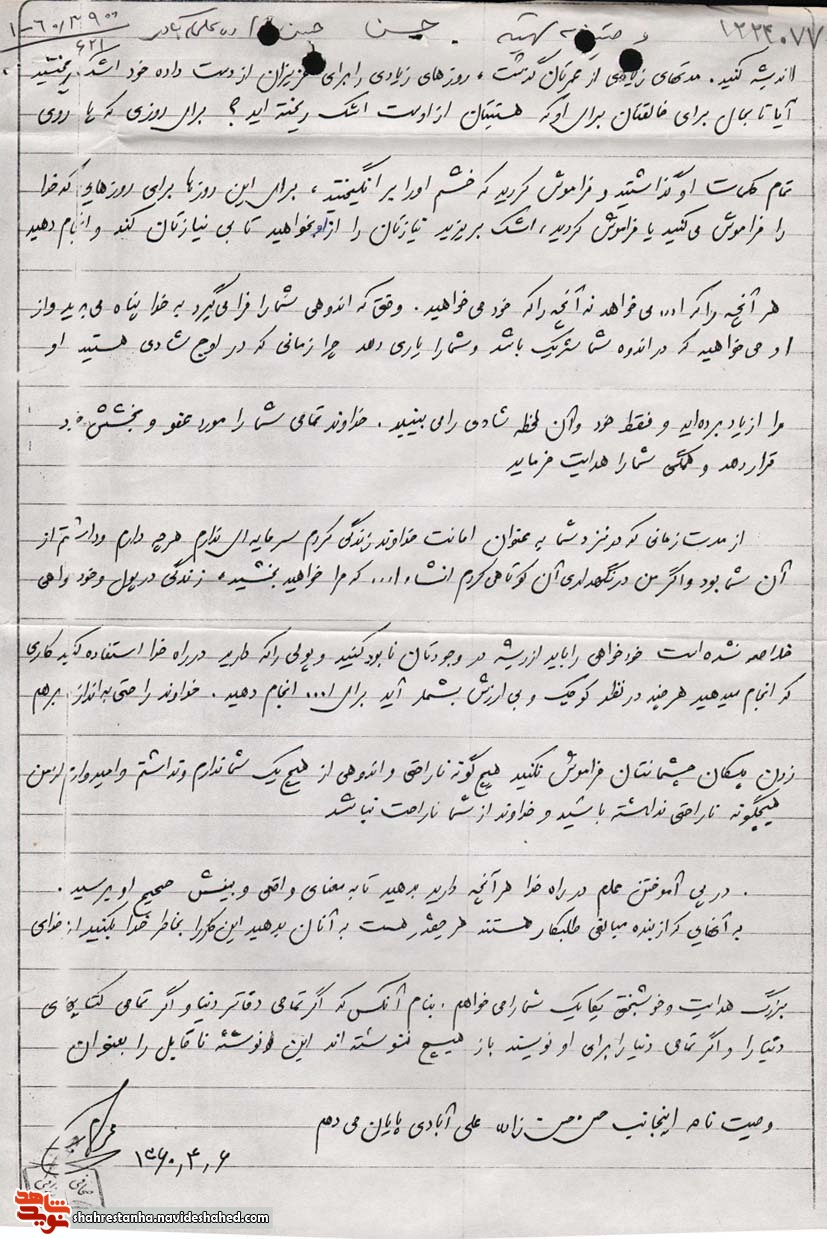 ۱۲۲۴۰۷۷
۶۲۱
اندیشه کنید. مدتهای زیادی از عمرتان گذشت، روزهای زیادی را برای عزیزان از دست داده خود اشک ریختید،
آیا تا بحال برای خالقتان برای او که هستیتان از اوست اشک ریخته اید؟ برای روزی که پا روی
تمام کلمات او گذاشتید و فراموش کردید که خشم او را برانگیختید، برای این روزها برای روزهایی که خدا
را فراموش می کنید یا فراموش کردید، اشک بریزید نیازتان را از او بخواهید تا بی نیازتان کند و انجام دهید
هر آنچه را که ا... می خواهد نه آنچه را که خود می خواهید. وقتی که اندوهی شما را فرا می گیرد به خدا پناه می برید و از
او می خواهید که در اندوه شما شریک باشد و شما را یاری دهد چرا زمانی که در اوج شادی هستید او
را از یاد برده اید و فقط خود و آن لحظه شادی را می بینید. خداوند تمامی شما را مورد عفو و بخشش خود
قرار دهد و همگی شما را هدایت فرماید
از مدت زمانی که در نزد شما به عنوان امانت خداوند زندگی کردم سرمایه ای ندارم هر چه دارم و داشتم از
آن شما بود و اگر من در نگهداری آن کوتاهی کردم انشاء ا... که مرا خواهید بخشید، زندگی در پول و خودخواهی
خلاصه نشده است خودخواهی را باید از ریشه در وجودتان نابود کنید و پولی را که دارید در راه خدا استفاده کنید کاری
که انجام میدهید هر چند در نظر کوچک و بی ارزش بشمار آید برای ا... انجام دهید. خداوند را حتی به اندازه برهم
زدن پلکان چشمانتان فراموش نکنید هیچ گونه ناراحتی و اندوهی از هیچ یک شما ندارم و نداشتم و امیدوارم از من
هیچگونه ناراحتی نداشته باشید و خداوند از شما ناراحت نباشد
. در پی آموختن علم در راه خدا هر آنچه دارید بدهید تا به معنای واقعی و بینش صحیح او برسید.
به آنهایی که از بنده مبالغی طلبکار هستند هر چقدر هست به آنان بدهید این کار را بخاطر خدا بکنید از خدای
بزرگ هدایت و خوشبختی یکایک شما را می خواهم. بنام آنکس که اگر تمامی دفاتر دنیا و اگر تمامی کتابهای
دنیا را و اگر تمامی دنیا را برای او نویسند باز هیچ ننوشته اند این نوشته ناقابل را بعنوان
وصیت نامه اینجانب حسن حسن زاده علی آبادی پایان می دهم
۱۳۶۰,۴,۶
نوید شاهد
shahrestanha.navideshahed.com